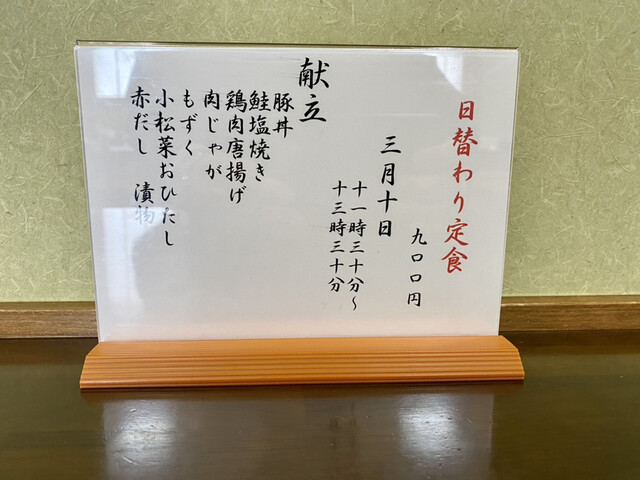 日替わり定食
九〇〇円
三月十日
十一時三十分〜
十三時三十分
献立
豚丼
鮭塩焼き
鶏肉唐揚げ
肉じゃが
もずく
小松菜おひたし
赤だし 漬物